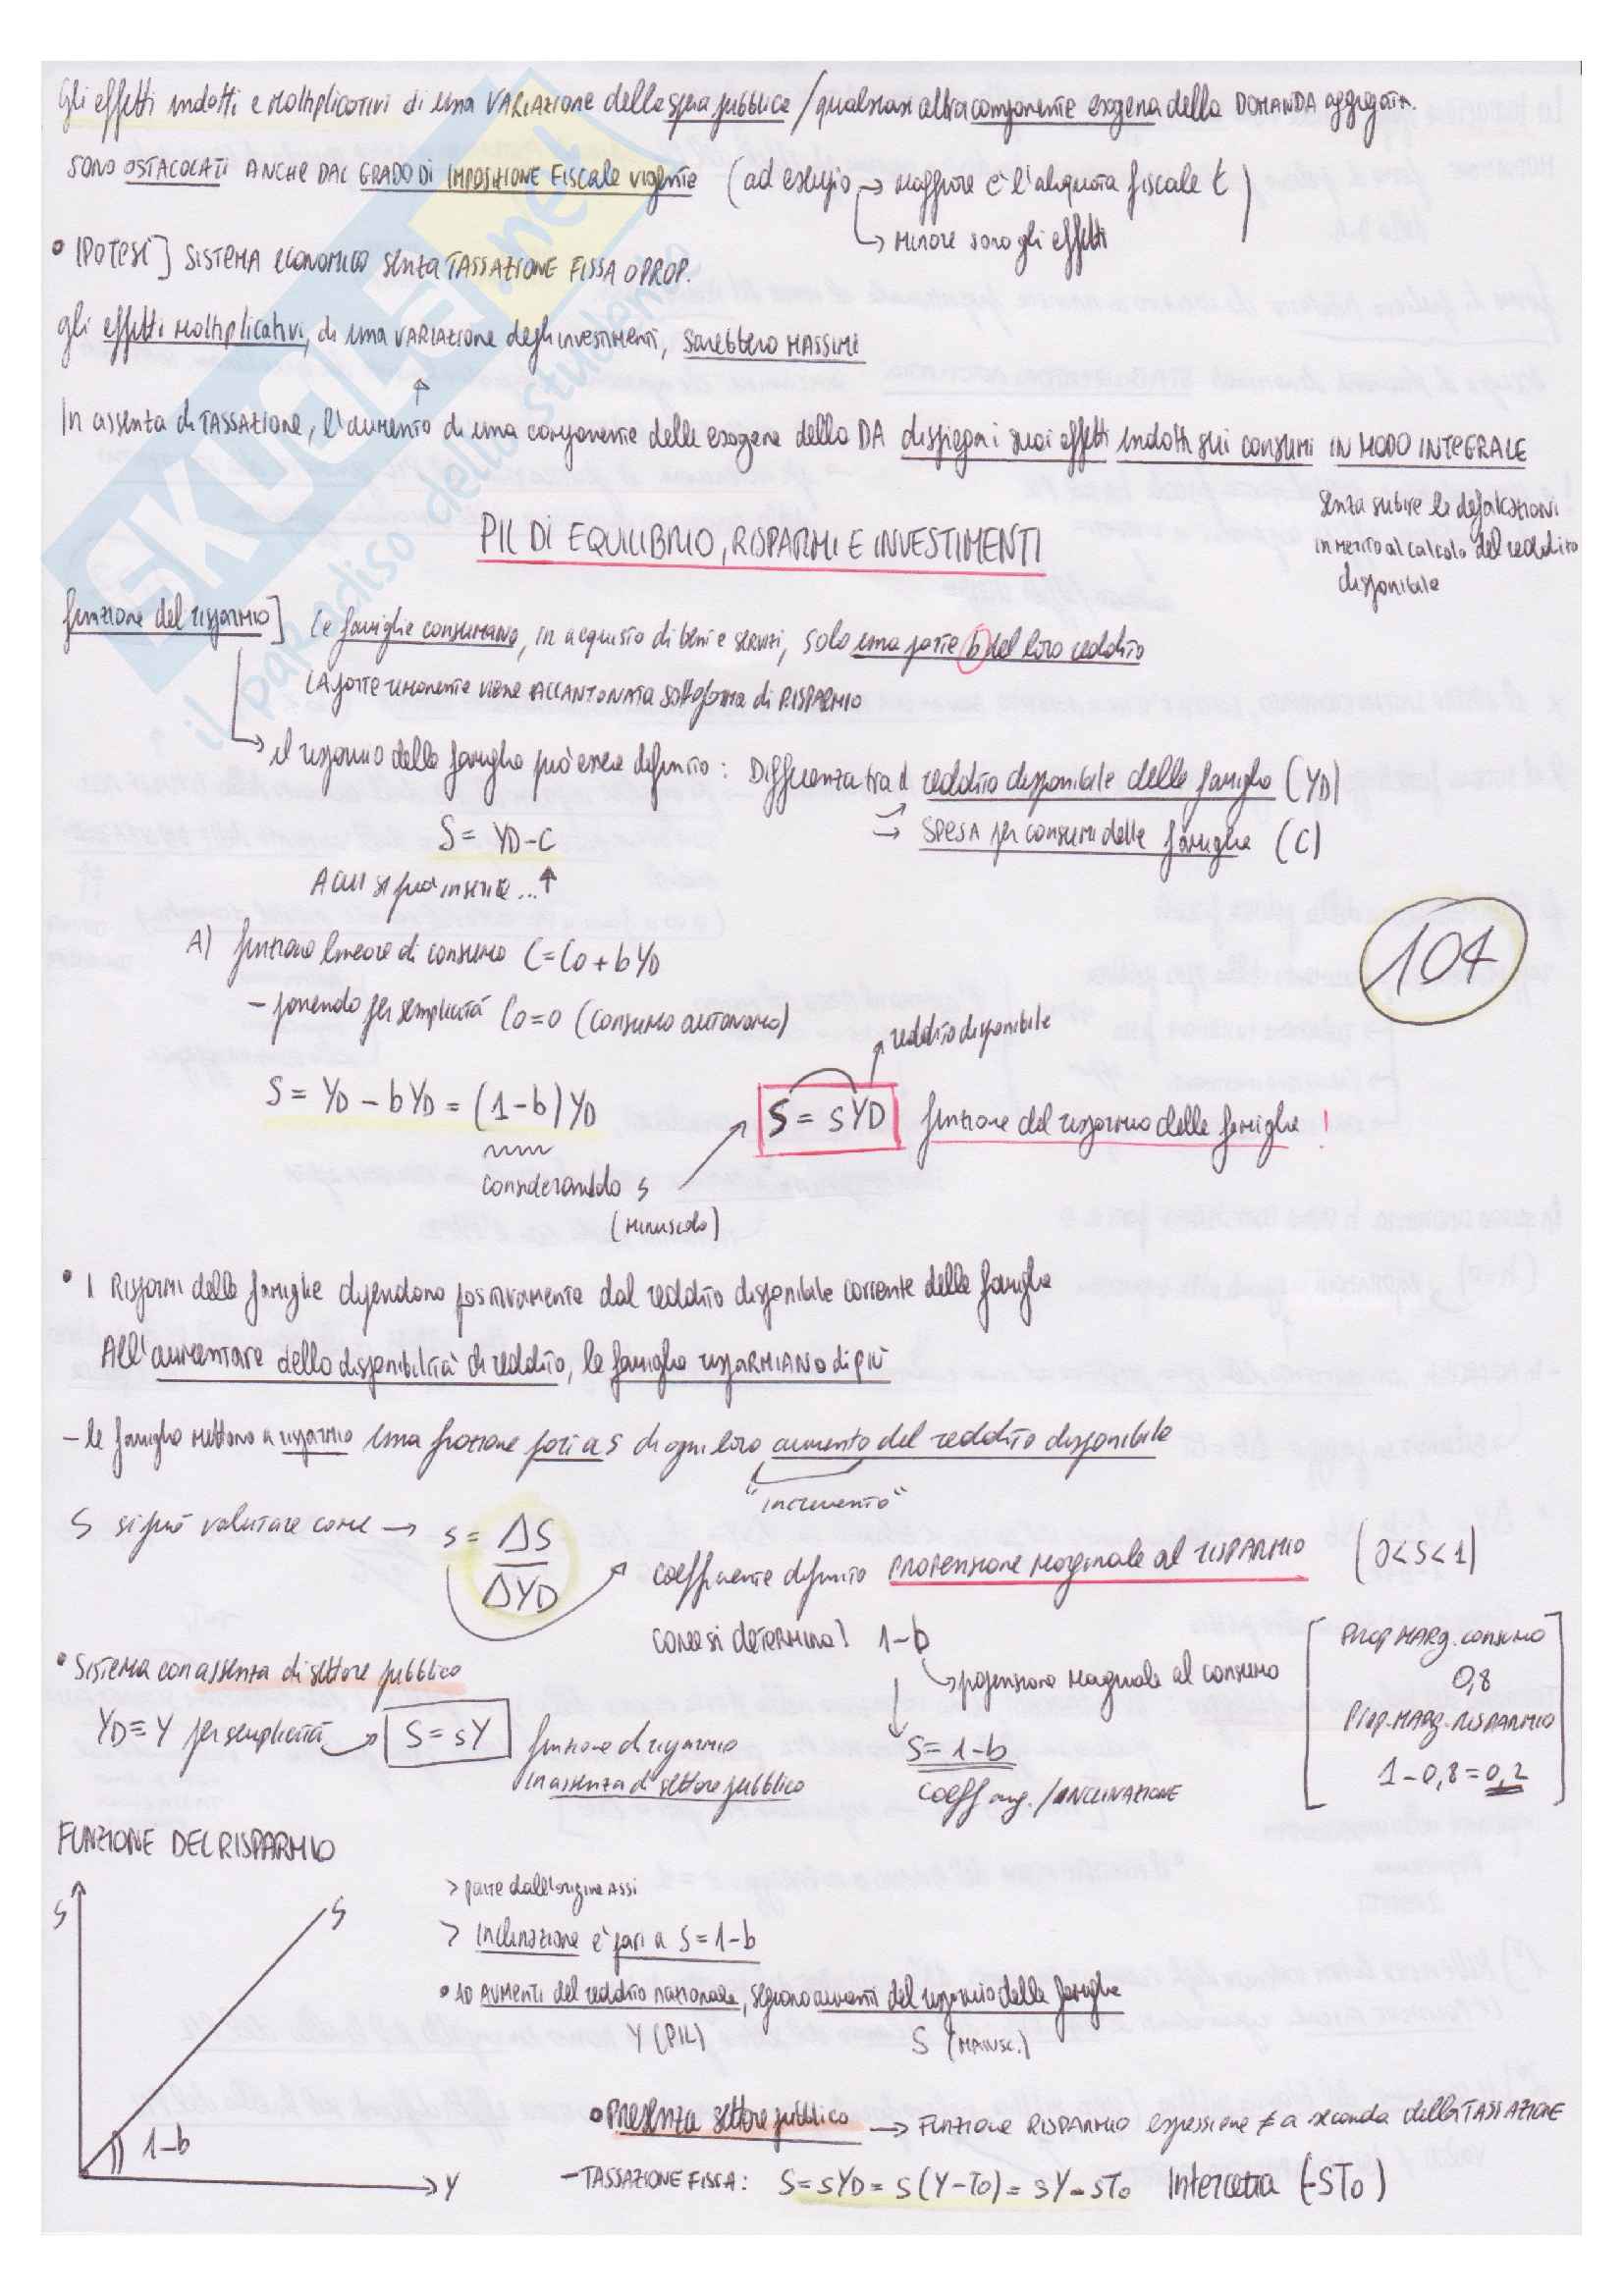 Gli effetti indotti e moltiplicativi di una VARIAZIONE della spesa pubblica / qualsiasi altra componente esogena della DOMANDA aggregata.
SONO OSTACOLATI ANCHE DAL GRADO DI IMPOSIZIONE FISCALE vigente (ad esempio → maggiore è l'aliquota fiscale t)
↳ minore sono gli effetti
• IPOTESI] SISTEMA ECONOMICO senza TASSAZIONE FISSA O PROP.
gli effetti moltiplicativi, di una VARIAZIONE degli investimenti, sarebbero MASSIMI
↑
In assenza di TASSAZIONE, l'aumento di una componente delle esogene della DA dispiega i suoi effetti indotti sui consumi IN MODO INTEGRALE
senza subire le defalcazioni
in merito al calcolo del reddito
disponibile
PIL DI EQUILIBRIO, RISPARMI E INVESTIMENTI
funzione del risparmio] Le famiglie consumano, in acquisto di beni e servizi, solo una parte b del loro reddito
LA parte rimanente viene ACCANTONATA sottoforma di RISPARMIO
↳ il risparmio delle famiglie può essere definito: Differenza tra il reddito disponibile delle famiglie (YD)
→ spesa per consumi delle famiglie (C)
S = YD - C
A cui si può inserire... ↑
A) funzione lineare di consumo C = C0 + bYD
- ponendo per semplicità C0 = 0 (consumo autonomo)
104
reddito disponibile
S = YD - bYD = (1-b)YD
S = sYD funzione del risparmio delle famiglie!
considerando s
(minuscolo)
• I Risparmi delle famiglie dipendono positivamente dal reddito disponibile corrente delle famiglie
All'aumentare della disponibilità di reddito, le famiglie risparmiano di più
- le famiglie mettono a risparmio una frazione pari a s di ogni loro aumento del reddito disponibile
"incremento"
S si può valutare come → s = ΔS / ΔYD
coefficiente definito PROPENSIONE marginale al RISPARMIO (0<s<1)
come si determina? 1-b
↳ propensione marginale al consumo
[PROP MARG. CONSUMO
0,8
PROP. MARG. RISPARMIO
1-0,8 = 0,2]
• SISTEMA con assenza di settore pubblico
YD ≡ Y per semplicità → S = sY funzione di risparmio
in assenza di settore pubblico
s = 1-b
coeff ang. / INCLINAZIONE
FUNZIONE DEL RISPARMIO
S
S
1-b
Y
> parte dall'origine assi
> Inclinazione è pari a s = 1-b
• AD AUMENTI del reddito nazionale, seguono aumenti del risparmio delle famiglie
Y (PIL) S (MAIUSC.)
• Presenza settore pubblico → FUNZIONE RISPARMIO espressione ≠ a seconda della TASSAZIONE
- TASSAZIONE FISSA: S = sYD = s(Y-T0) = sY - sT0 Intercetta (-sT0)
SKUOLA.net
il paradiso dello studente